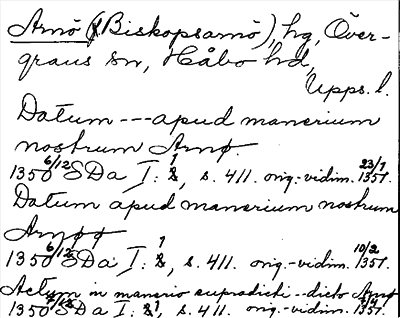 Arnö (Biskopsarnö), hg, Över-
graus sn, Håbo hd,
Upps. l.
Datum --- apud manerium
nostrum Arnø.
1350 6/12 SDa I: 1, s. 411. orig.-vidim. 23/1 1351.
Datum apud manerium nostrum
Arnøø
1350 6/12 SDa I: 1, s. 411. orig.-vidim. 10/2 1351.
Actum in manerio supradicti -- dicto Arnø
1350 SDa I: 1, s. 411. orig.-vidim. 1351.